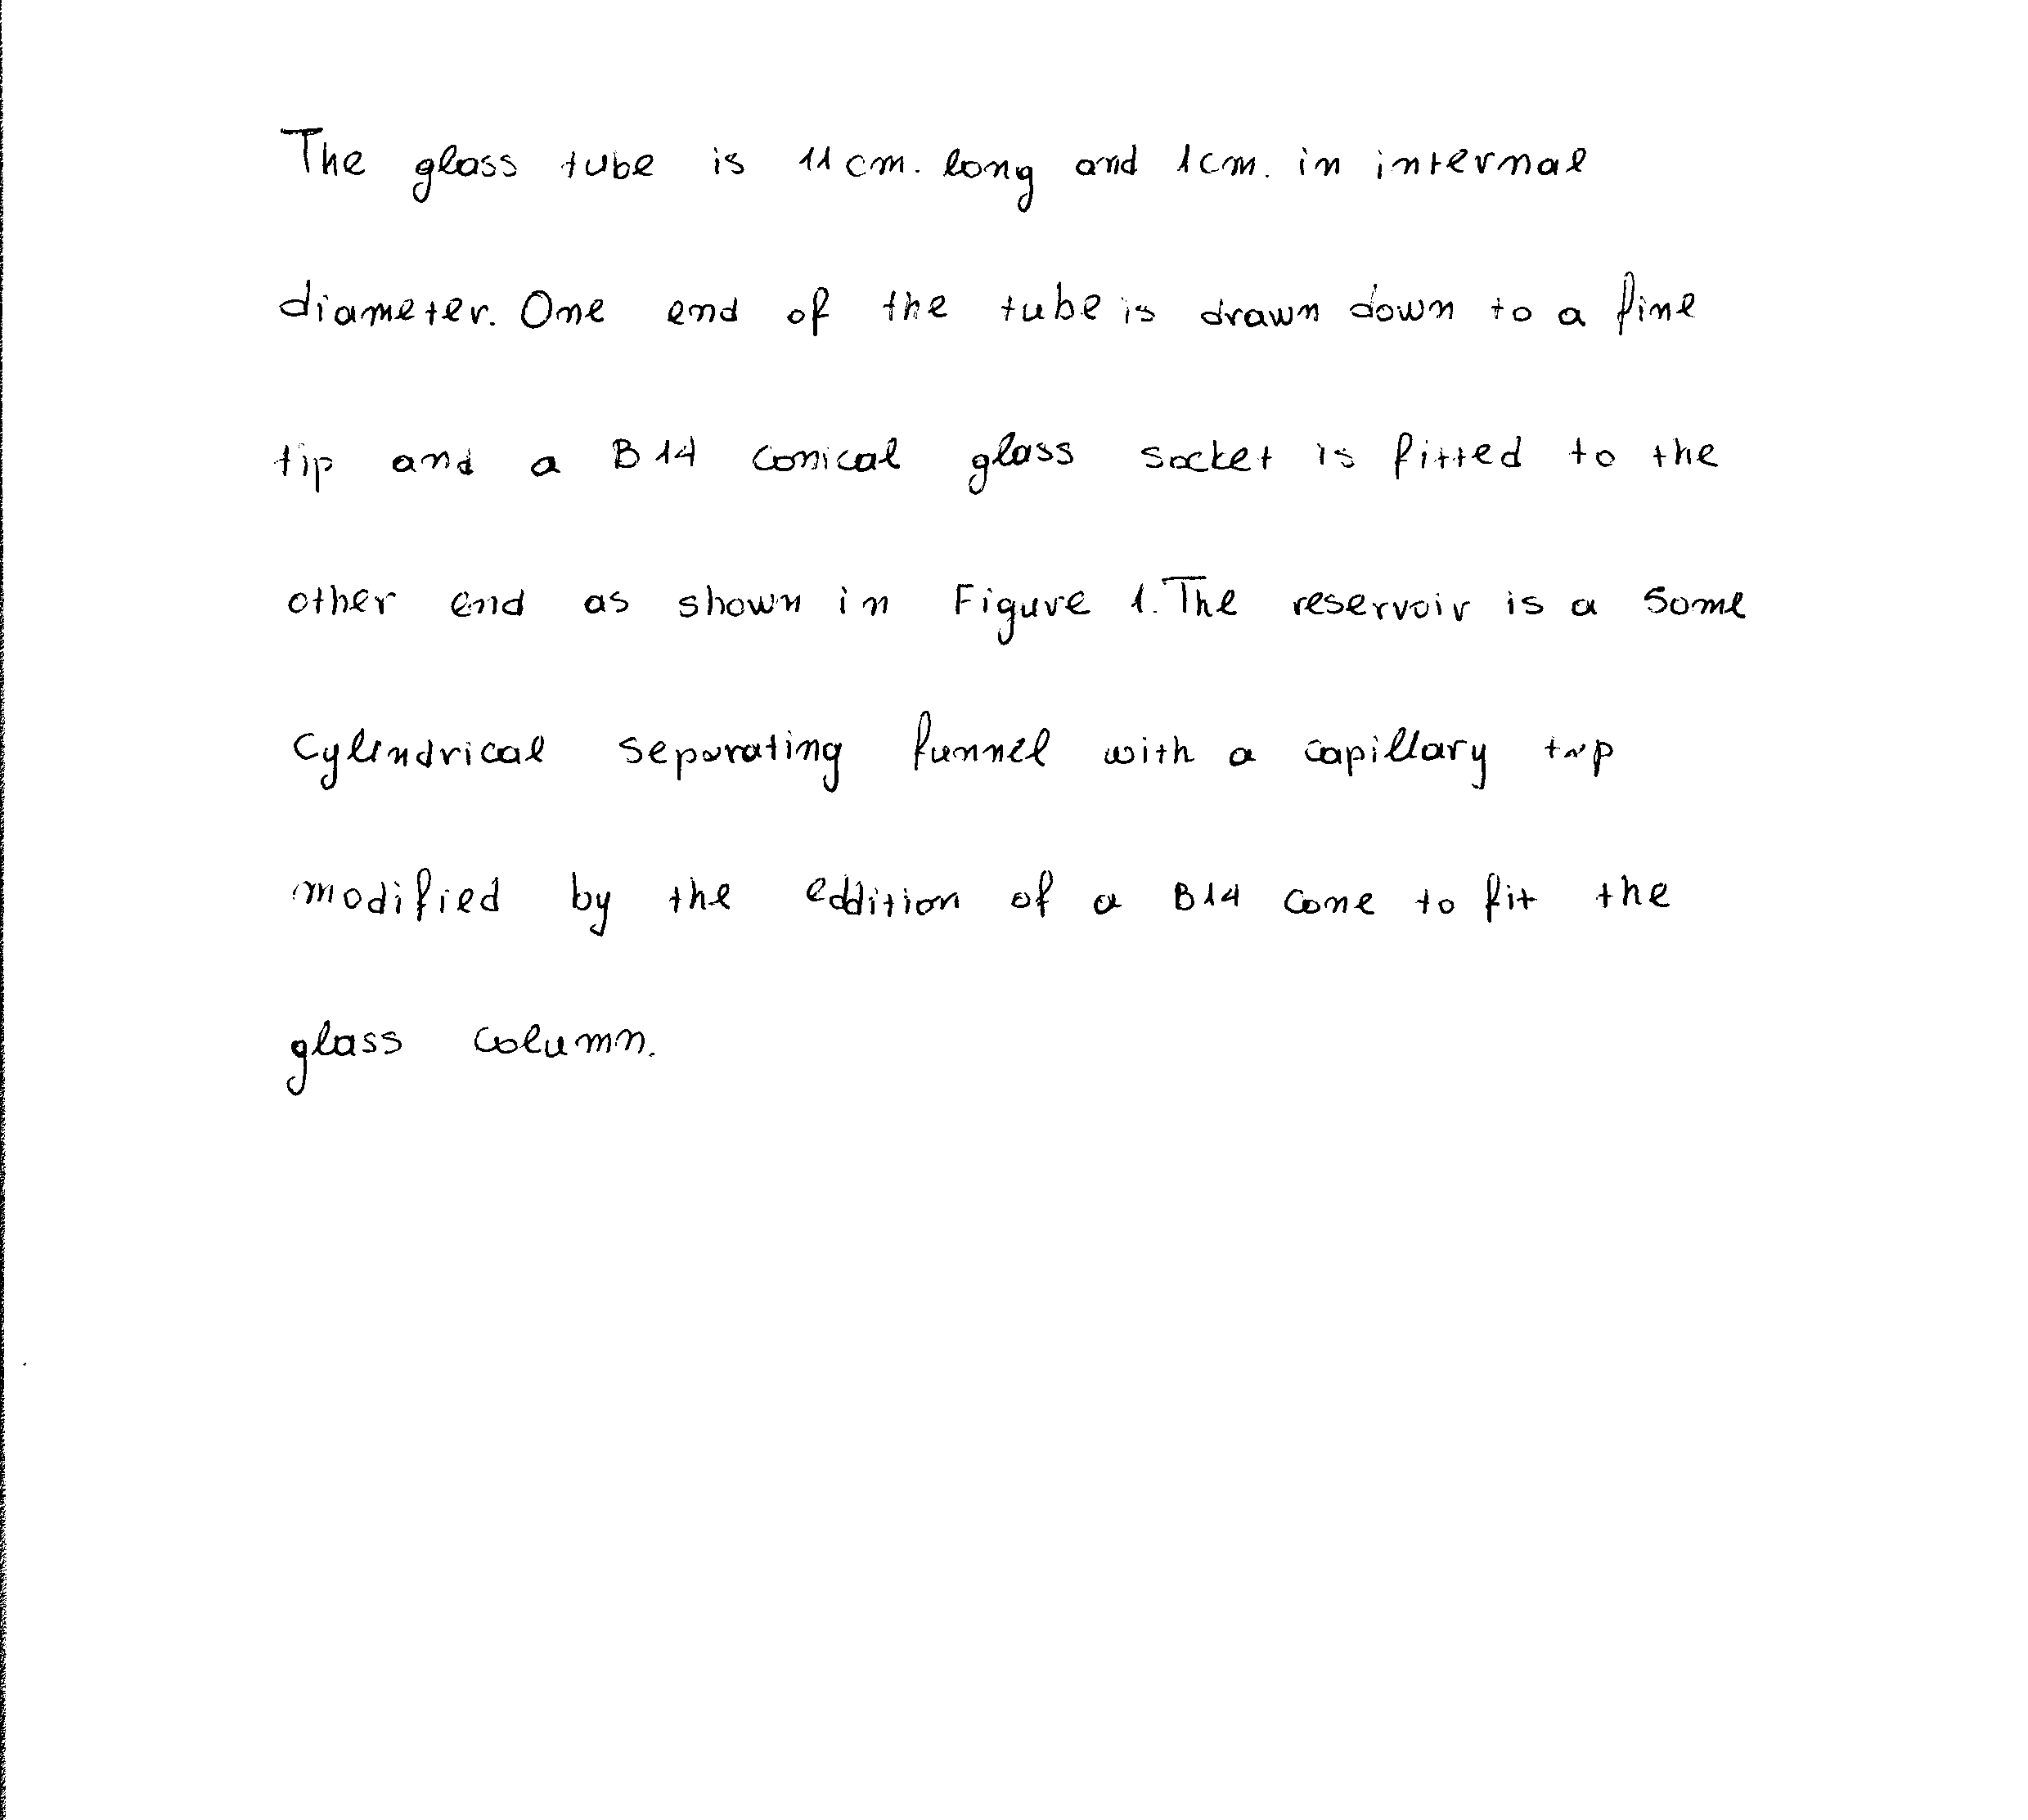 The glass tube is 11 cm. long and 1cm. in internal
diameter. One end of the tube is drawn down to a fine
tip and a B14 conical glass socket is fitted to the
other end as shown in Figure 1. The reservoir is a some
cylindrical separating funnel with a capillary tap
modified by the eddition of a B14 cone to fit the
glass column.